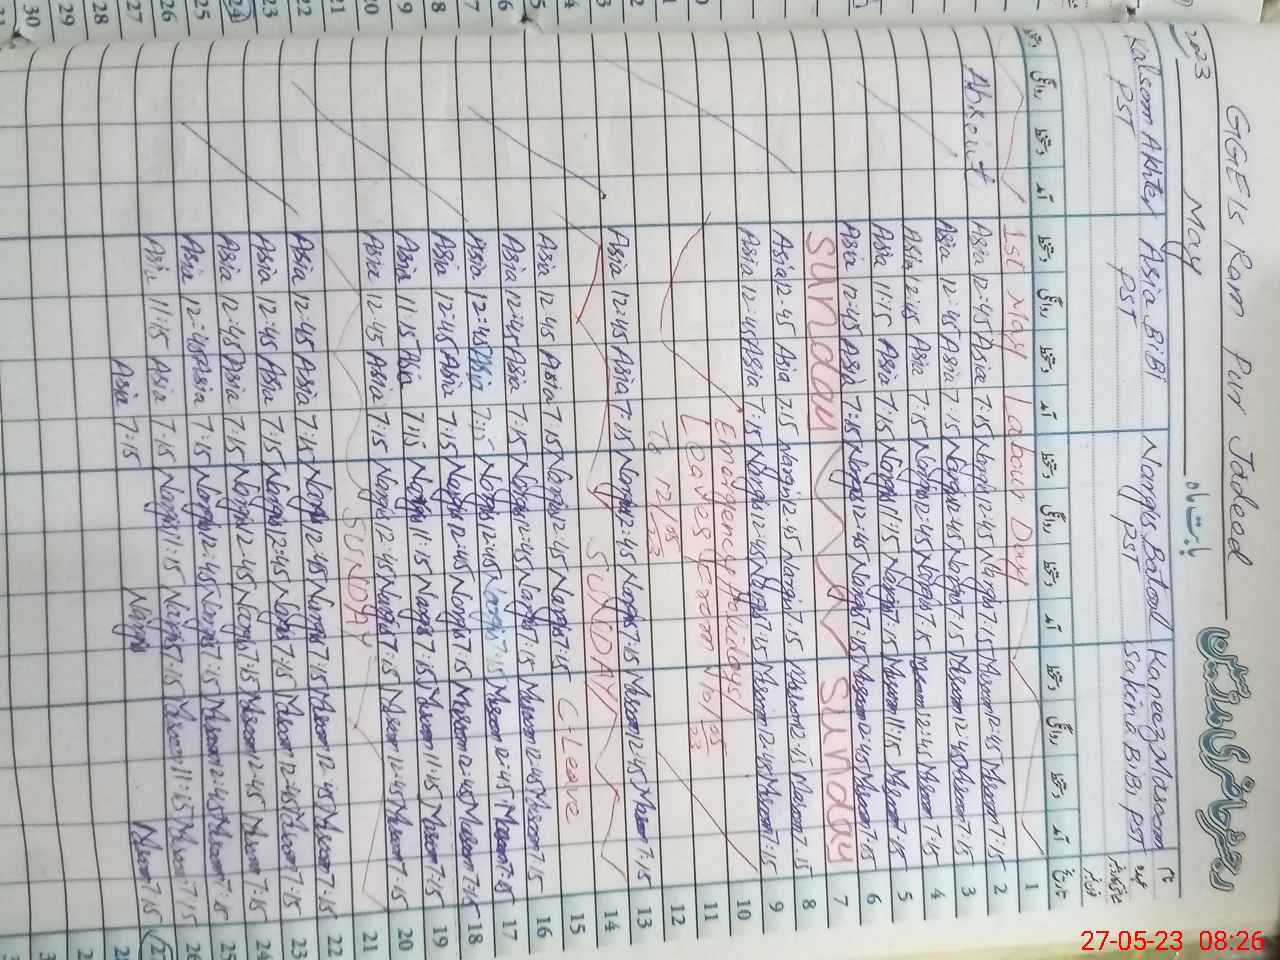 GGE1S Ram Pur Jadeed
رجسٹر حاضری مدرسین
2023 May بابت ماہ
Kalsoom Akhter Asia BiBi Nargis Batool Kaneez Masoom نام
PST PST PST Sakina BiBi PST عہدہ
دستخط روانگی دستخط آمد دستخط روانگی دستخط آمد دستخط روانگی دستخط آمد دستخط روانگی دستخط آمد تاریخ
1st May Labour Day 1
Absent Asia 12:45 Asia 7:15 Nargis 12:45 Nargis 7:15 Masoom 12:45 Masoom 7:15 2
Asia 12:45 Asia 7:15 Nargis 12:45 Nargis 7:15 Masoom 12:45 Masoom 7:15 3
Asia 12:45 Asia 7:15 Nargis 12:45 Nargis 7:15 Masoom 12:45 Masoom 7:15 4
Asia 11:15 Asia 7:15 Nargis 11:15 Nargis 7:15 Masoom 11:15 Masoom 7:15 5
Asia 12:45 Asia 7:15 Nargis 12:45 Nargis 7:15 Masoom 12:45 Masoom 7:15 6
Sunday Sunday 7
Asia 12:45 Asia 7:15 Nargis 12:45 Nargis 7:15 Masoom 12:45 Masoom 7:15 8
Asia 12:45 Asia 7:15 Nargis 12:45 Nargis 7:15 Masoom 12:45 Masoom 7:15 9
Emergency Holidays/ 10
Leaves From 10/05/23 11
To 12/05/23 12
Asia 12:45 Asia 7:15 Nargis 12:45 Nargis 7:15 Masoom 12:45 Masoom 7:15 13
SUNDAY 14
Asia 12:45 Asia 7:15 Nargis 12:45 Nargis 7:15 C-Leave 15
Asia 12:45 Asia 7:15 Nargis 12:45 Nargis 7:15 Masoom 12:45 Masoom 7:15 16
Asia 12:45 Asia 7:15 Nargis 12:45 Nargis 7:15 Masoom 12:45 Masoom 7:15 17
Asia 12:45 Asia 7:15 Nargis 12:45 Nargis 7:15 Masoom 12:45 Masoom 7:15 18
Asia 11:15 Asia 7:15 Nargis 11:15 Nargis 7:15 Masoom 11:45 Masoom 7:15 19
Asia 12:45 Asia 7:15 Nargis 12:45 Nargis 7:15 Masoom 12:45 Masoom 7:15 20
SUNDAY 21
Asia 12:45 Asia 7:15 Nargis 12:45 Nargis 7:15 Masoom 12:45 Masoom 7:15 22
Asia 12:45 Asia 7:15 Nargis 12:45 Nargis 7:15 Masoom 12:45 Masoom 7:15 23
Asia 12:45 Asia 7:15 Nargis 12:45 Nargis 7:15 Masoom 12:45 Masoom 7:15 24
Asia 12:45 Asia 7:15 Nargis 12:45 Nargis 7:15 Masoom 12:45 Masoom 7:15 25
Asia 11:15 Asia 7:15 Nargis 11:15 Nargis 7:15 Masoom 11:15 Masoom 7:15 26
Asia 7:15 Nargis Masoom 7:15 27
28
27-05-23 08:26